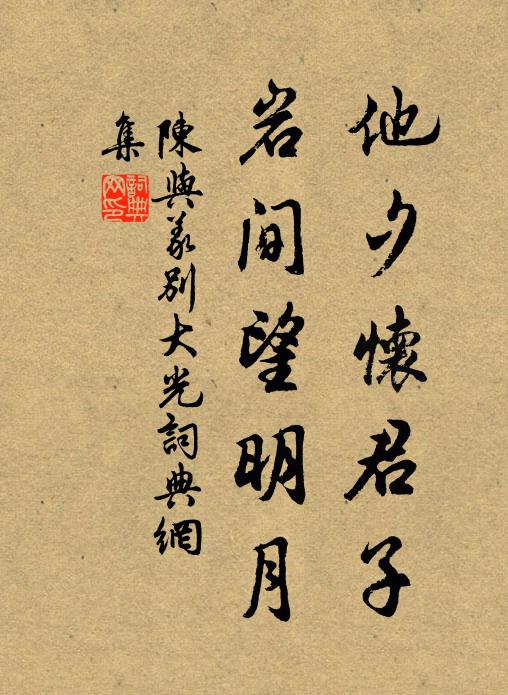 他夕懷君子
岩間望明月
陳與義別大光詞典網
集
詞典
网印